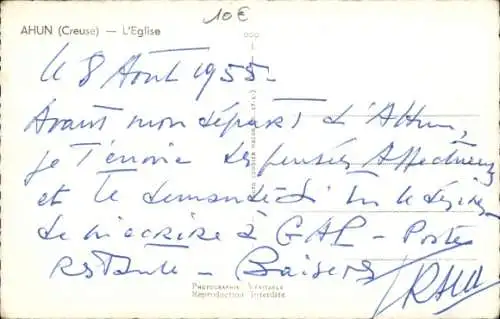 10€
AHUN (Creuse) — L'Eglise
le 8 Août 1955.
Avant mon départ d'Ahun,
je t'envoie des pensées Affectueuses
et te demande si tu le désires
de m'écrire à GAP - Poste
Restante - Baisers
PHOTOGRAPHIE VÉRITABLE
Reproduction Interdite